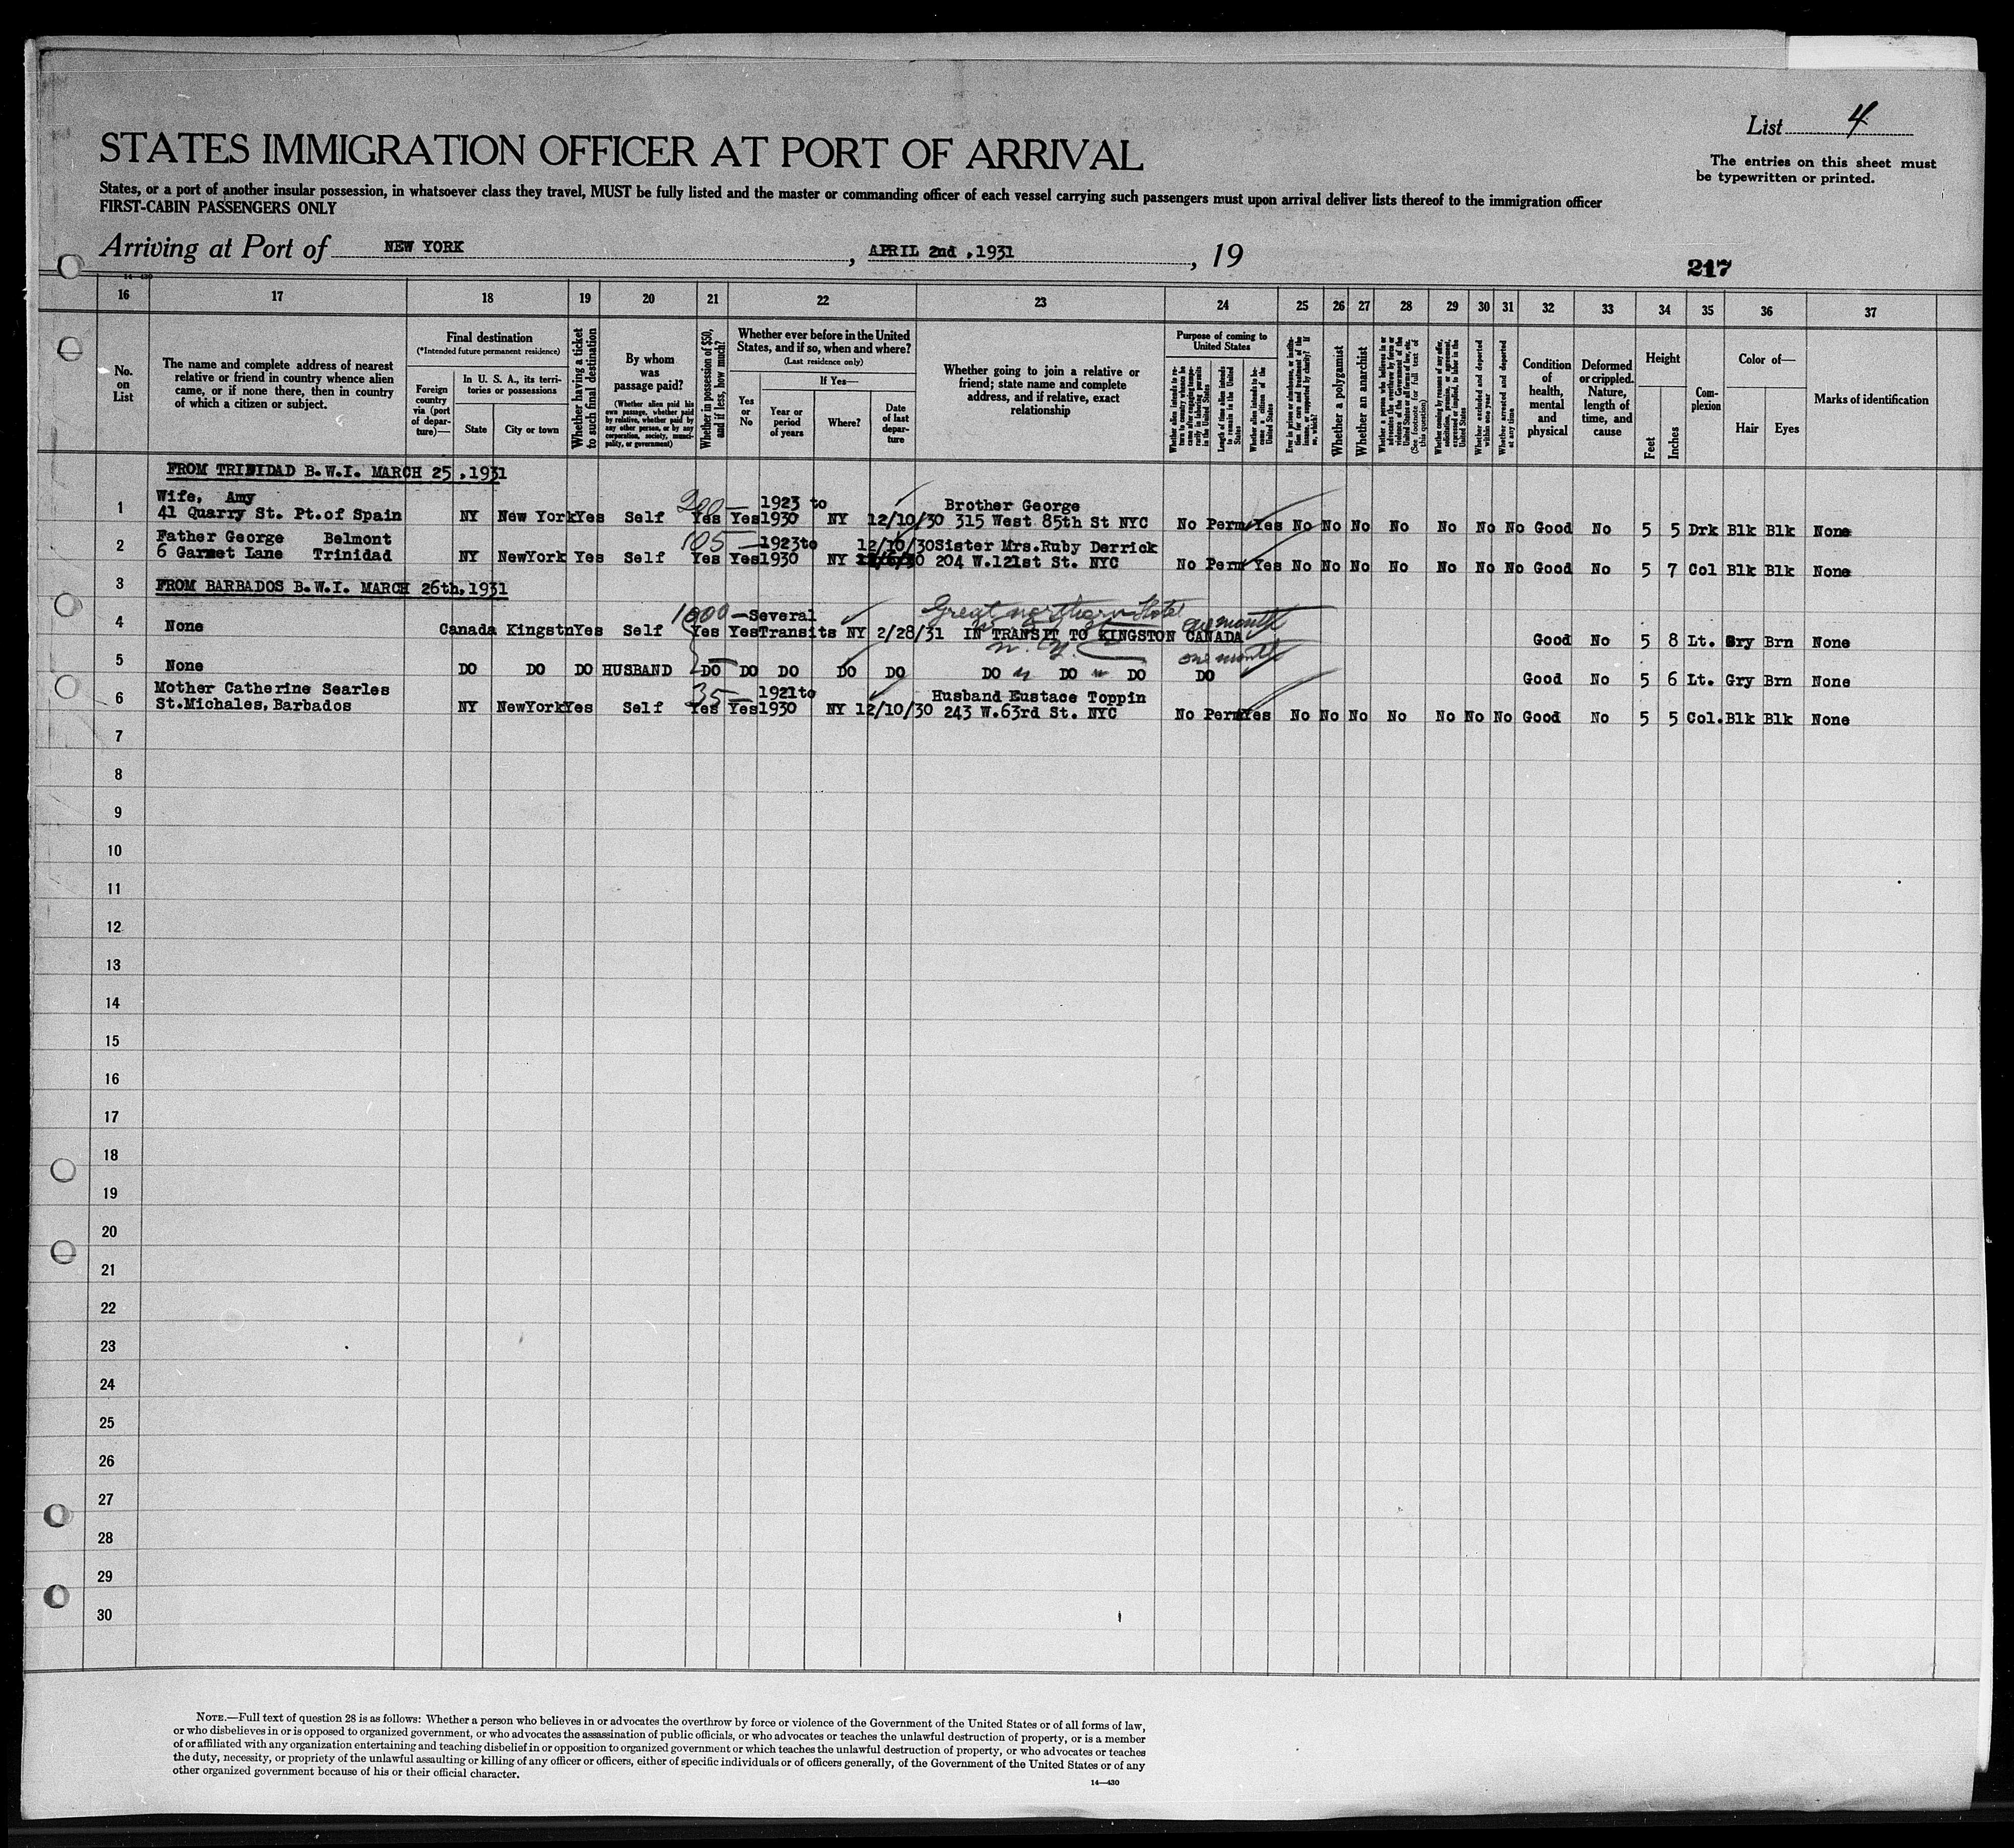 List 4
The entries on this sheet must
be typewritten or printed.
STATES IMMIGRATION OFFICER AT PORT OF ARRIVAL
States, or a port of another insular possession, in whatsoever class they travel, MUST be fully listed and the master or commanding officer of each vessel carrying such passengers must upon arrival deliver lists thereof to the immigration officer
FIRST-CABIN PASSENGERS ONLY
Arriving at Port of NEW YORK, APRIL 2nd ,1931, 19
217
14-430
16 17 18 19 20 21 22 23 24 25 26 27 28 29 30 31 32 33 34 35 36 37
No.
on
List
The name and complete address of nearest
relative or friend in country whence alien
came, or if none there, then in country
of which a citizen or subject.
Final destination
(*Intended future permanent residence)
Foreign
country
via (port
of depar-
ture)—
In U. S. A., its terri-
tories or possessions
State
City or town
Whether having a ticket
to such final destination
By whom
was
passage paid?
(Whether alien paid his
own passage, whether paid
by relative, whether paid by
any other person, or by any
corporation, society, munici-
pality, or government)
Whether in possession of $50,
and if less, how much?
Whether ever before in the United
States, and if so, when and where?
(Last residence only)
Yes
or
No
If Yes—
Year or
period
of years
Where?
Date
of last
depar-
ture
Whether going to join a relative or
friend; state name and complete
address, and if relative, exact
relationship
Purpose of coming to
United States
Length of time alien intends
to remain in the United
States
Whether alien intends to be-
come a citizen of the
United States
Whether a polygamist
Whether an anarchist
Whether excluded and deported
within one year
Whether arrested and deported
at any time
Condition
of
health,
mental
and
physical
Deformed
or crippled.
Nature,
length of
time, and
cause
Height
Feet
Inches
Com-
plexion
Color of—
Hair
Eyes
Marks of identification
FROM TRINIDAD B.W.I. MARCH 25 ,1931
1 Wife, Amy 200— 1923 to Brother George
41 Quarry St. Pt.of Spain NY New York Yes Self Yes Yes 1930 NY 12/10/30 315 West 85th St NYC No Perm Yes No No No No No No No Good No 5 5 Drk Blk Blk None
2 Father George Belmont 105— 1923to 12/10/30 Sister Mrs.Ruby Derrick
6 Garmet Lane Trinidad NY NewYork Yes Self Yes Yes 1930 NY 204 W.121st St. NYC No Perm Yes No No No No No No No Good No 5 7 Col Blk Blk None
3 FROM BARBADOS B.W.I. MARCH 26th,1931
4 1000— Several Great northern Hotel one month
None Canada Kingstn Yes Self Yes Yes Transits NY 2/28/31 IN TRANSIT TO KINGSTON CANADA Good No 5 8 Lt. Gry Brn None
n. y. one month
5 None DO DO DO HUSBAND DO DO DO DO DO DO " DO " DO DO Good No 5 6 Lt. Gry Brn None
6 Mother Catherine Searles 35— 1921to Husband Eustace Toppin
St.Michales, Barbados NY NewYork Yes Self Yes Yes 1930 NY 12/10/30 243 W.63rd St. NYC No Perm Yes No No No No No No No Good No 5 5 Col. Blk Blk None
7
8
9
10
11
12
13
14
15
16
17
18
19
20
21
22
23
24
25
26
27
28
29
30
NOTE.—Full text of question 28 is as follows: Whether a person who believes in or advocates the overthrow by force or violence of the Government of the United States or of all forms of law,
or who disbelieves in or is opposed to organized government, or who advocates the assassination of public officials, or who advocates or teaches the unlawful destruction of property, or is a member
of or affiliated with any organization entertaining and teaching disbelief in or opposition to organized government or which teaches the unlawful destruction of property, or who advocates or teaches
the duty, necessity, or propriety of the unlawful assaulting or killing of any officer or officers, either of specific individuals or of officers generally, of the Government of the United States or of any
other organized government because of his or their official character.
14—430